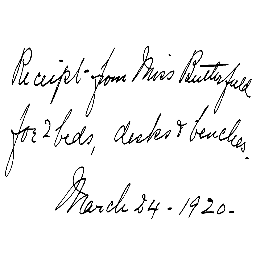 Receipt from Miss Butterfield
for 2 beds, desks & benches.
March 24 - 1920 -